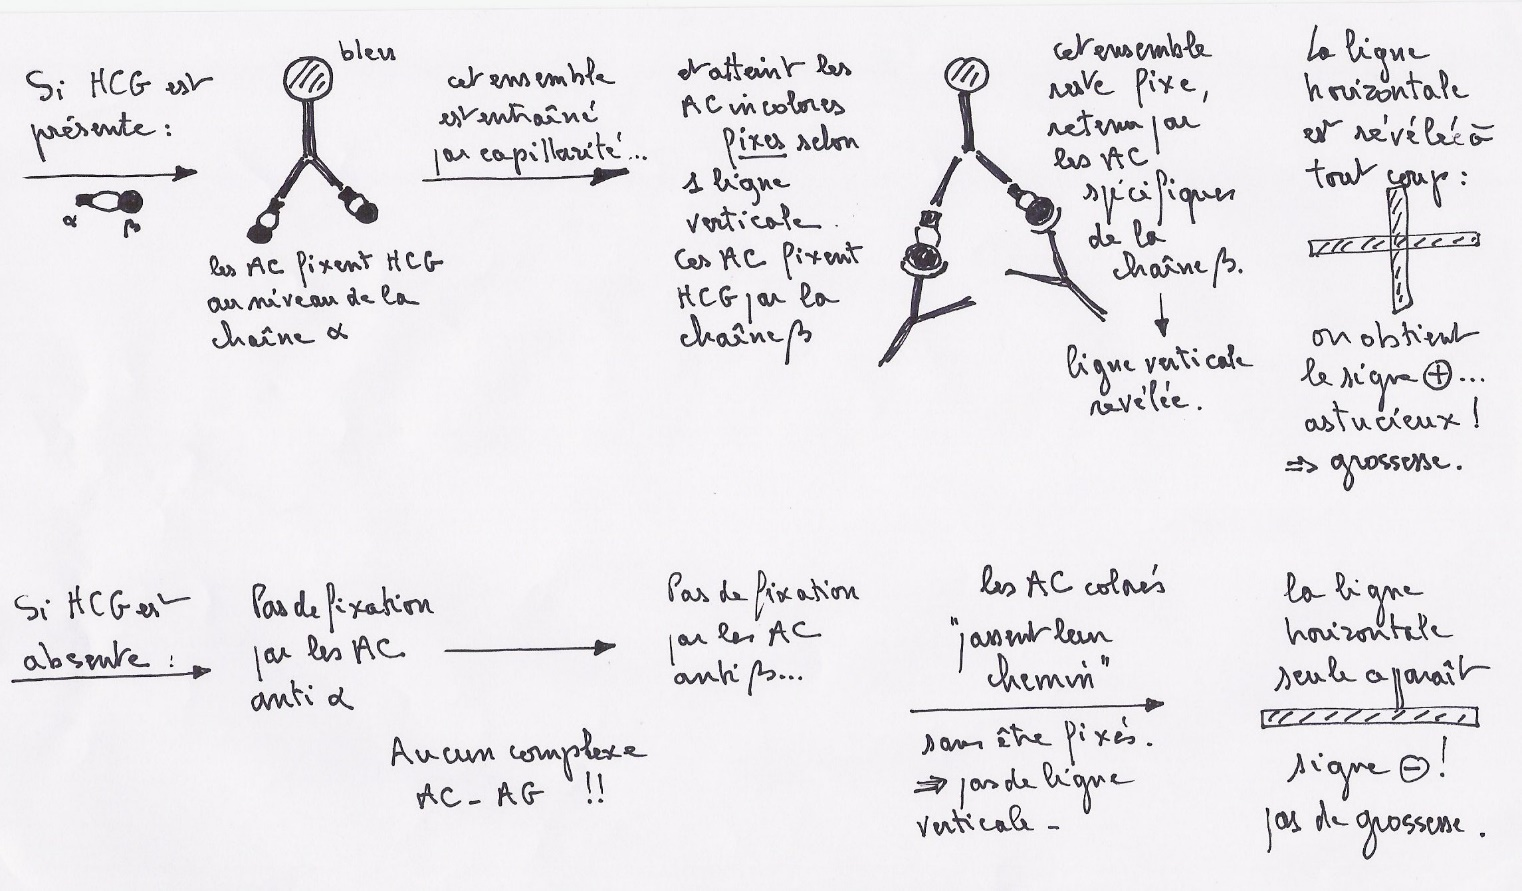 Si HCG est
présente :
α
β
bleu
les AC fixent HCG
au niveau de la
chaîne α
cet ensemble
est entraîné
par capillarité...
et atteint les
AC incolores
fixes selon
1 ligne
verticale.
Ces AC fixent
HCG par la
chaîne β
cet ensemble
reste fixe,
retenu par
les AC
spécifiques
de la
chaîne β.
ligne verticale
révélée.
La ligne
horizontale
est révélée à
tout coup :
on obtient
le signe ⊕...
astucieux !
⇒ grossesse.
Si HCG est
absente :
Pas de fixation
par les AC
anti α
Aucun complexe
AC - AG !!
Pas de fixation
par les AC
anti β...
les AC colorés
"passent leur
chemin"
sans être fixés.
⇒ pas de ligne
verticale -
la ligne
horizontale
seule apparaît
signe ⊖ !
pas de grossesse.